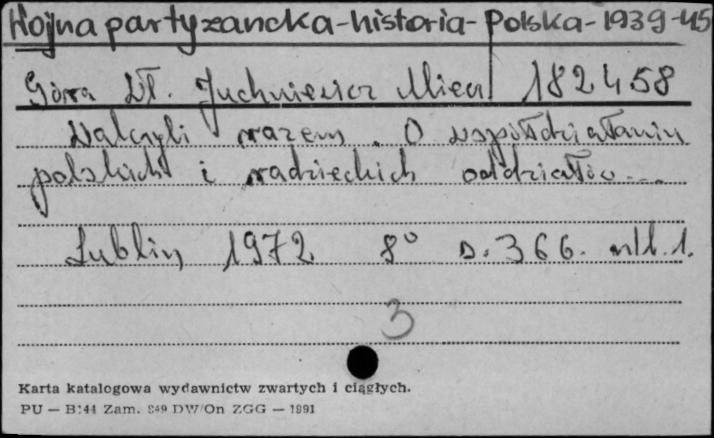 Wojna partyzancka-historia-Polska-1939-45
Góra Wł. Juchniewicz Miecz 182458
Walczyli razem. O współdziałaniu
polskich i radzieckich oddziałów...
Lublin 1972 8° s. 366. nlb. 1.
3
Karta katalogowa wydawnictw zwartych i ciągłych.
PU — B144 Zam. 849 DW/On ZGG — 1991